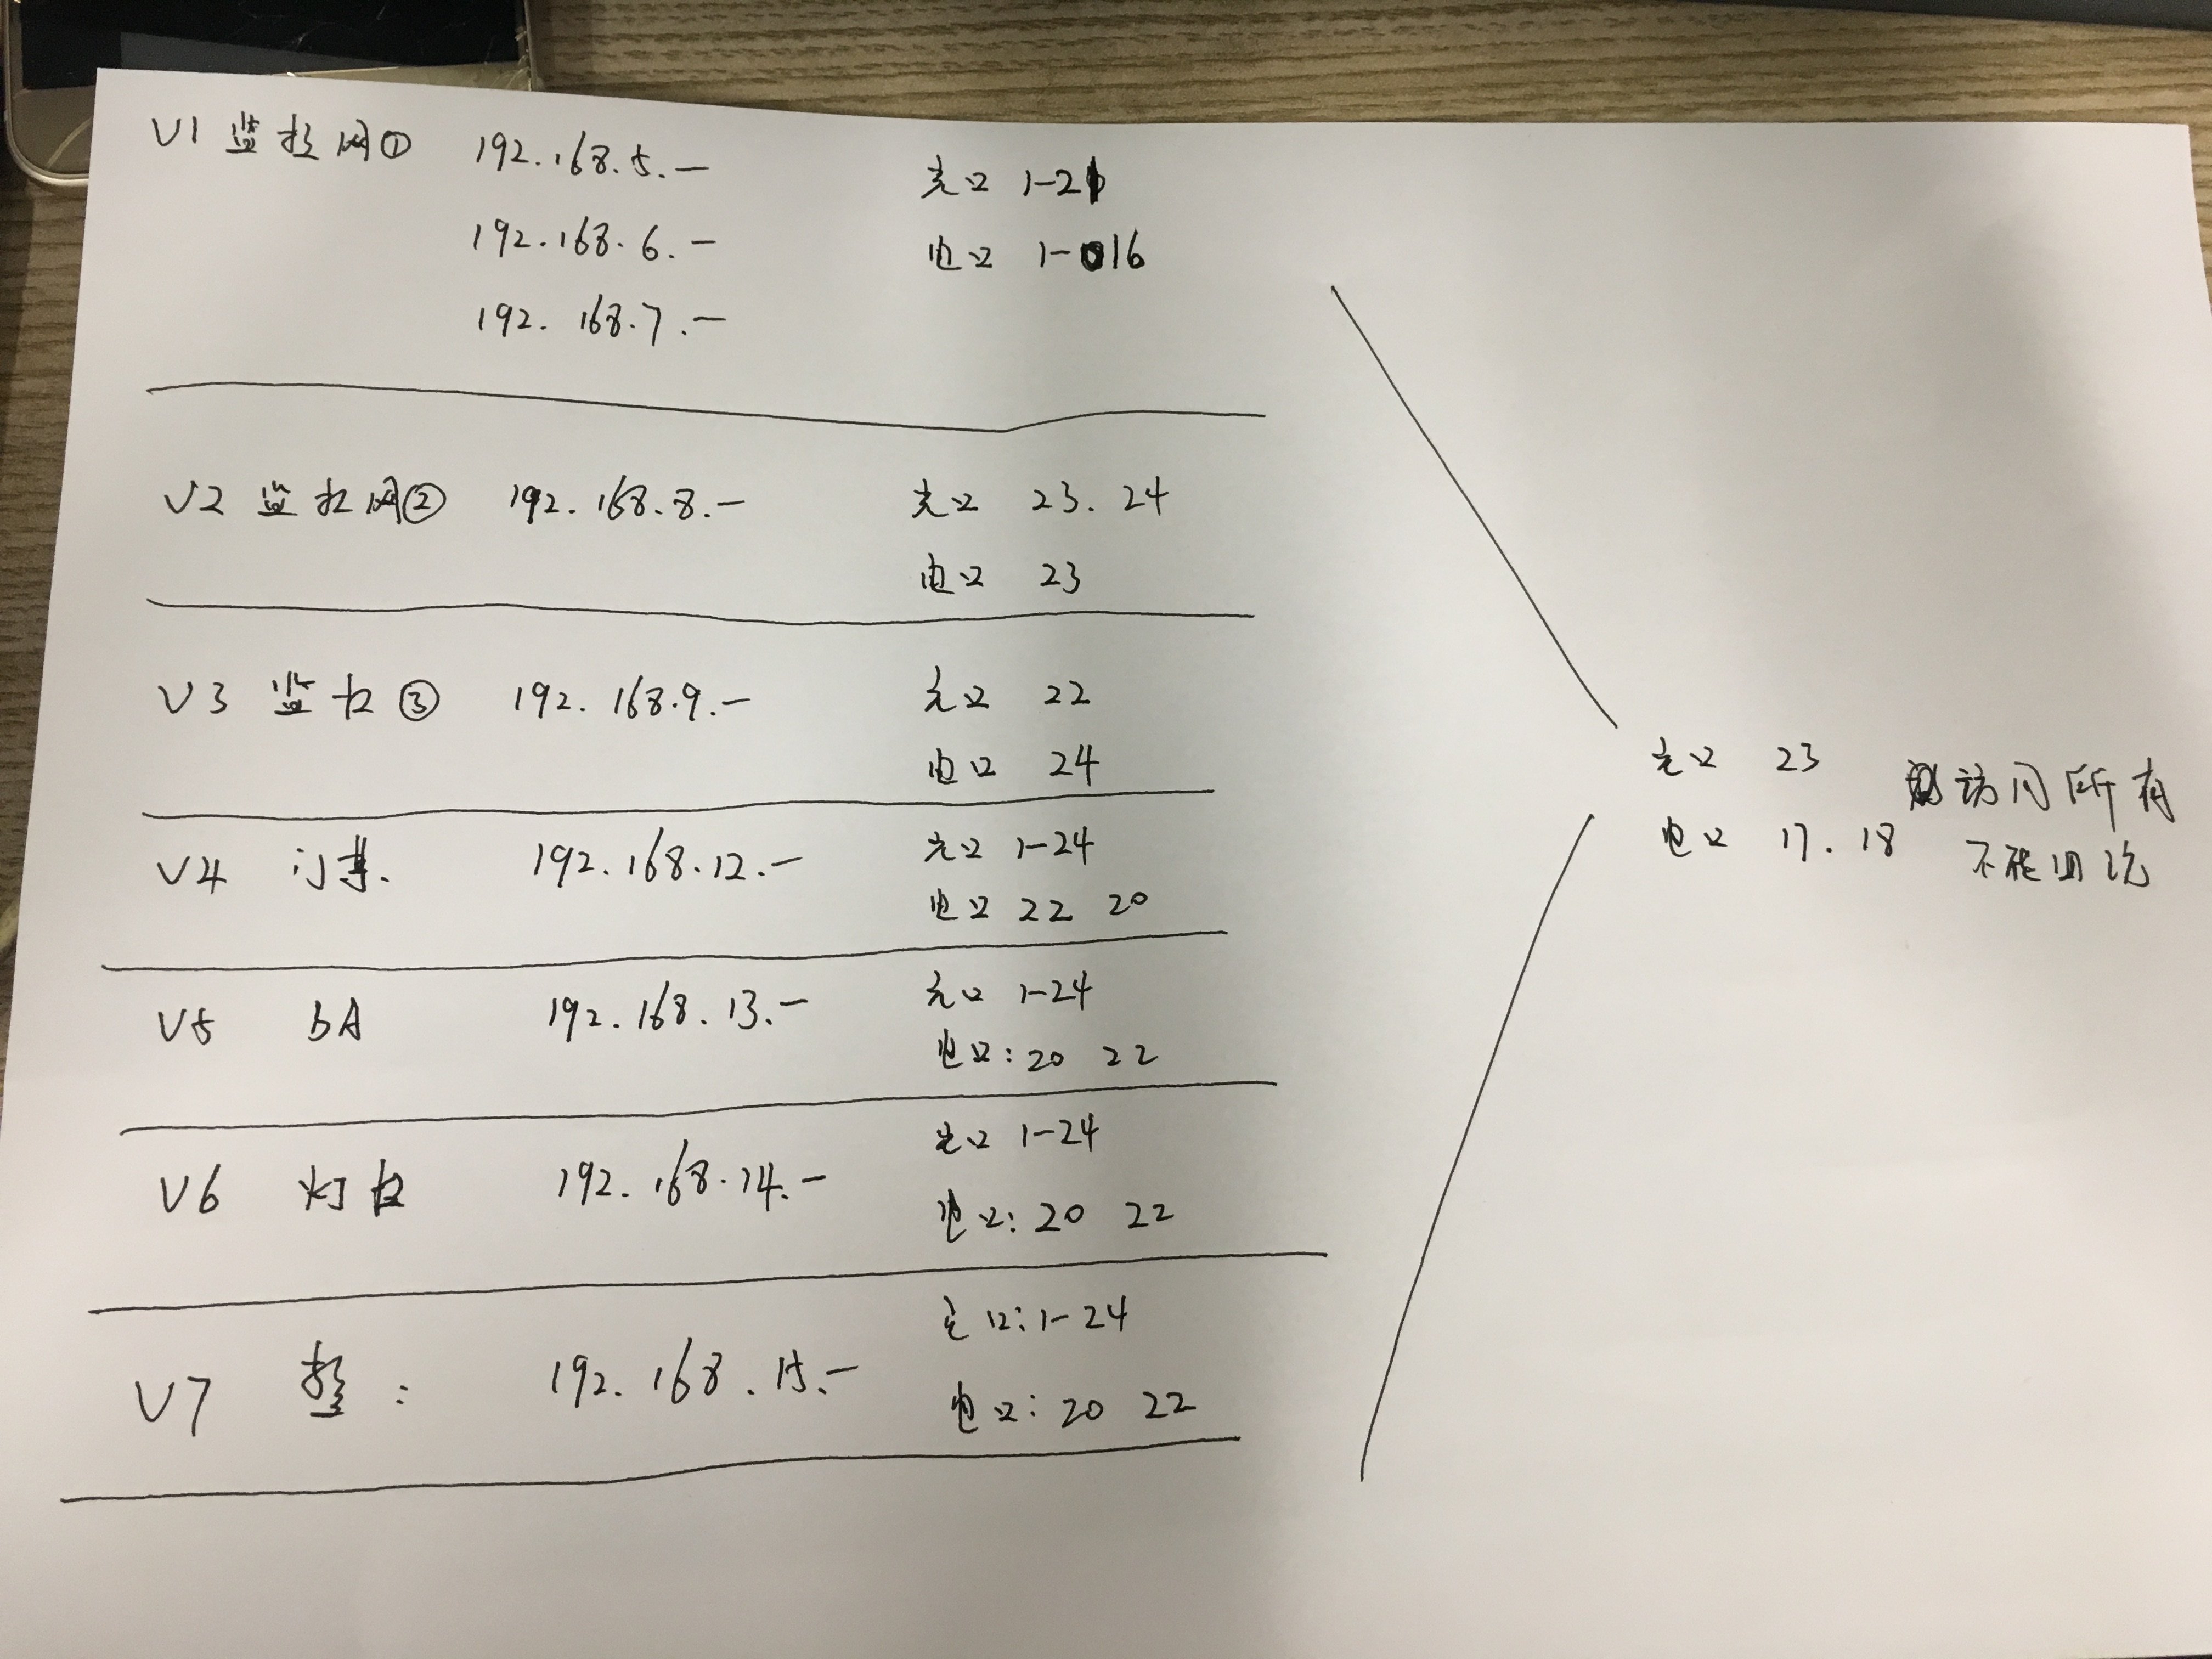 V1 监控网① 192.168.5.- 光口 1-21
192.168.6.- 电口 1-16
192.168.7.-
V2 监控网② 192.168.8.- 光口 23. 24
电口 23
V3 监控③ 192.168.9.- 光口 22
电口 24
V4 门禁. 192.168.12.- 光口 1-24
电口 22 20
V5 BA 192.168.13.- 光口 1-24
电口: 20 22
V6 灯控 192.168.14.- 光口 1-24
电口: 20 22
V7 : 192.168.15.- 光口: 1-24
电口: 20 22
光口 23 访问所有
电口 17. 18 不能回访